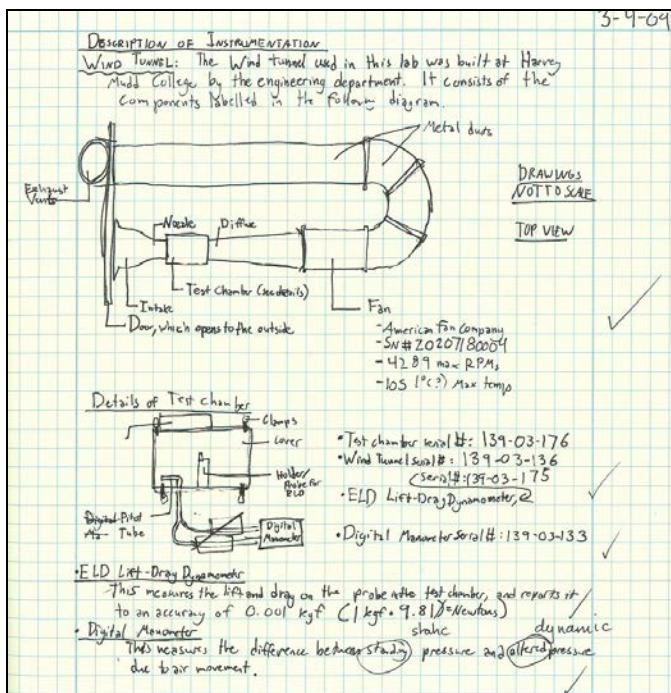 3-4-09
DESCRIPTION OF INSTRUMENTATION
WIND TUNNEL: The Wind tunnel used in this lab was built at Harvey
Mudd College by the engineering department. It consists of the
components labelled in the following diagram.
Metal ducts
Exhaust
Vents
DRAWINGS
NOT TO SCALE
TOP VIEW
Nozzle
Diffuse
Test Chamber (see details)
Intake
Fan
Door, which opens to the outside
-American Fan Company
-SN# 20207180004
-4289 max RPMs
-105 1°(?) Max temp
Details of Test chamber
Clamps
Cover
Holder/
Probe for
ELD
Pitot
Tube
Digital
Manometer
•Test chamber serial #: 139-03-176
•Wind Tunnel serial #: 139-03-136
(serial #: 139-03-175
•ELD Lift-Drag Dynamometer,
•Digital Manometer Serial #: 139-03-133
•ELD Lift-Drag Dynamometer
This measures the lift and drag on the probe in the test chamber, and reports it
to an accuracy of 0.001 kgf (1 kgf • 9.81 = Newtons)
•Digital Manometer
static dynamic
This measures the difference between standing pressure and altered pressure
due to air movement.